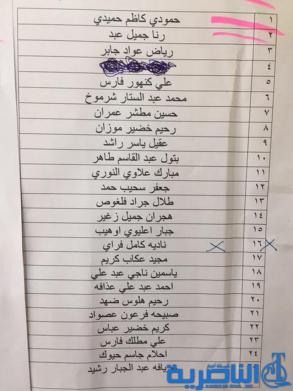 ١ حمودي كاظم حميدي
٢ رنا جميل عبد
٣ رياض عواد جابر
٤
٥ علي كنهور فارس
٦ محمد عبد الستار شرموخ
٧ حسين مطشر عمران
٨ رحيم خضير موزان
٩ عقيل ياسر راشد
١٠ بتول عبد القاسم طاهر
١١ مبارك علاوي النوري
١٢ جعفر سحيب حمد
١٣ طلال جراد فلغوص
١٤ هجران جميل زغير
١٥ جبار اعليوي اوهيب
١٦ ناديه كامل فراي
١٧ مجيد عكاب كريم
١٨ ياسمين ناجي عبد علي
١٩ احمد عبد علي عذافه
٢٠ رحيم هلوس ضهد
٢١ صبيحه فرعون عصواد
٢٢ كريم خضير عباس
٢٣ علي مطلك فارس
٢٤ احلام جاسم حيوك
عبد الجبار رشيد
الناصرية